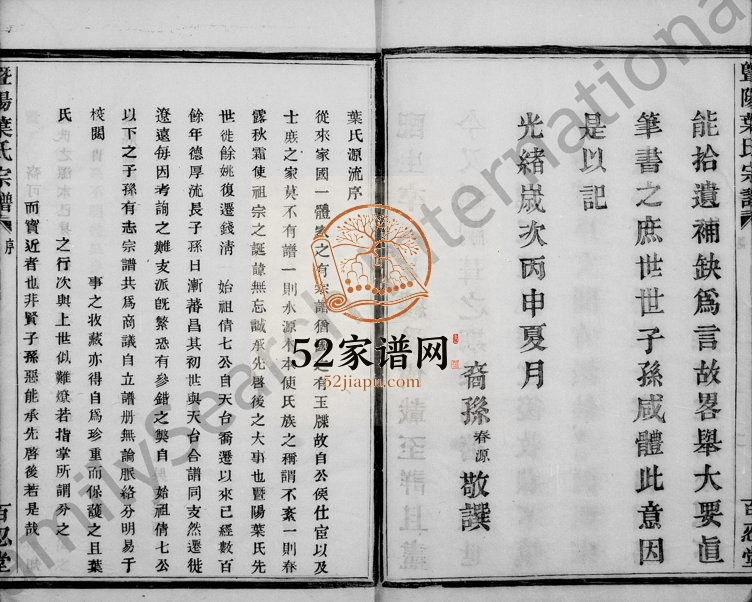 能拾遺補缺爲言故畧舉大要直
筆書之庶世世子孫咸體此意因
是以記
光緒歲次丙申夏月
裔孫春源敬譔
暨陽葉氏宗譜
百忍堂
葉氏源流序
從來家國一體家之有宗譜猶之有玉牒故自公侯仕宦以及
士庶之家莫不有譜一則水源木本使氏族之稱謂不紊一則春
露秋霜使祖宗之誕諱無忘誠承先啓後之大事也暨陽葉氏先
世徙餘姚復遷錢淸 始祖倩七公自天台喬遷以來已經數百
餘年德厚流長子孫日漸蕃昌其初世與天台合譜同支然遷徙
遼遠每因考詢之難支派旣繁恐有參錯之獘自 始祖倩七公
以下之子孫有志宗譜共爲商議自立譜册無論脈絡分明易于
校閱 事之收藏亦得自爲珍重而保護之且葉
氏 之行次與上世似難燎若指掌所謂分之
而實近者也非賢子孫惡能承先啓後若是哉
暨陽葉氏宗譜
序
百忍堂
52家谱网
52jiapu.com
FamilySearch International